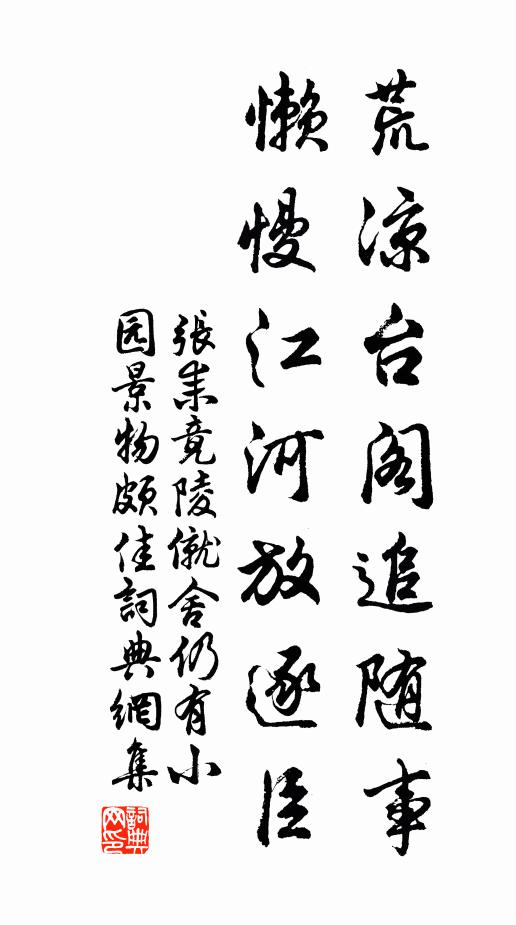 荒凉台阁追随事
懒慢江河放逐臣
張耒竟陵僦舍仍有小
园景物頗佳詞典網集
詞典网印